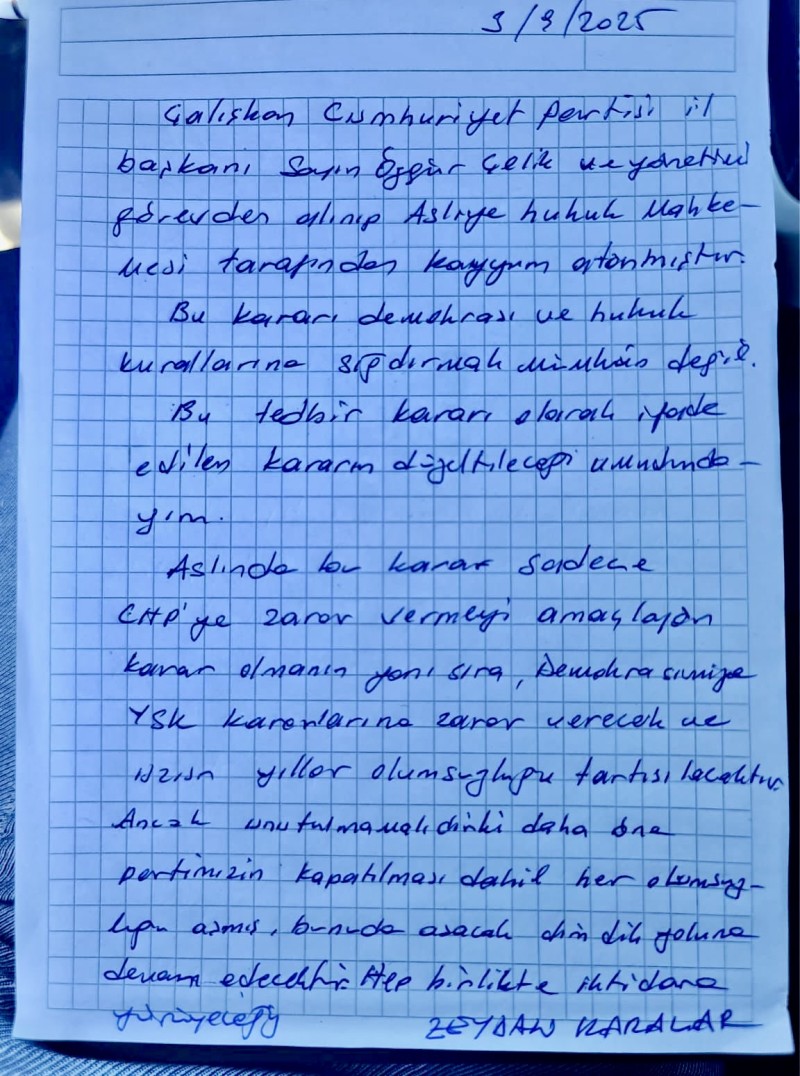 3/9/2025
Çalışkan Cumhuriyet partisi il
başkanı Sayın Özgür Çelik ve yönetimi
görevden alınıp Asliye hukuk Mahke-
mesi tarafından kayyum atanmıştır.
Bu kararı demokrasi ve hukuk
kurallarına sığdırmak mümkün değil.
Bu tedbir kararı olarak ifade
edilen kararın düzeltileceği umudunda-
yım.
Aslında bu karar sadece
CHP'ye zarar vermeyi amaçlayan
karar olmanın yanı sıra, Demokrasimize
YSK kararlarına zarar verecek ve
uzun yıllar olumsuzluğu tartışılacaktır.
Ancak unutulmamalıdırki daha önce
partimizin kapatılması dahil her olumsuz-
luğu aşmış, bunuda aşacak dim dik yoluna
devam edecektir. Hep birlikte iktidara
yürüyeceğiz
ZEYDAN KARALAR